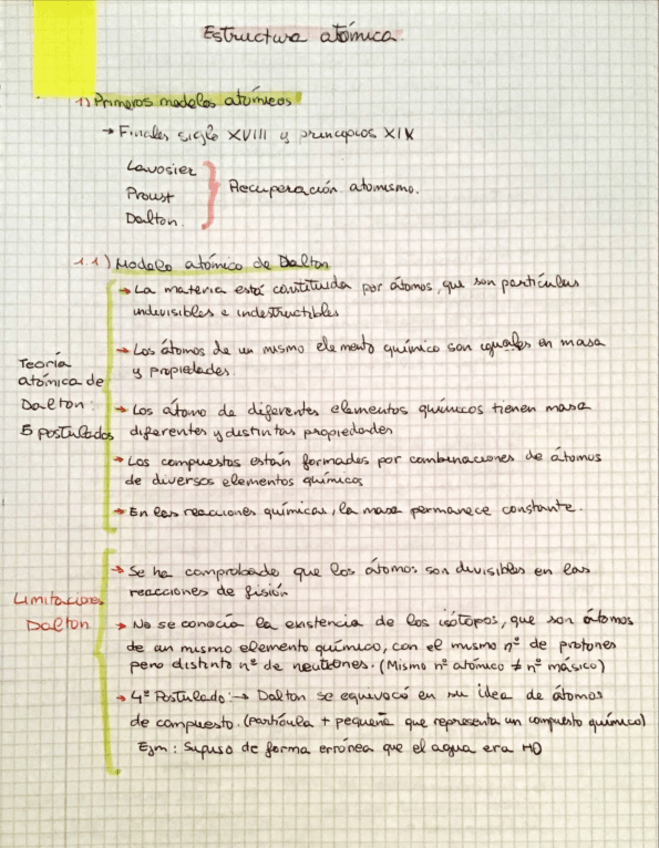 Estructura atómica.
1) Primeros modelos atómicos
→ Finales siglo XVIII y principios XIX
Lavosier
Proust
Dalton.
Recuperación atomismo.
1.1) Modelo atómico de Dalton
Teoría atómica de Dalton: 5 postulados
→ La materia está constituida por átomos, que son partículas
indivisibles e indestructibles
→ Los átomos de un mismo elemento químico son iguales en masa
y propiedades.
→ Los átomo de diferentes elementos químicos tienen masa
diferentes y distintas propiedades
→ Los compuestos están formados por combinaciones de átomos
de diversos elementos químicos
→ En las reacciones químicas, la masa permanece constante.
Limitaciones Dalton
→ Se ha comprobado que los átomos son divisibles en las
reacciones de fisión
→ No se conocía la existencia de los isótopos, que son átomos
de un mismo elemento químico, con el mismo nº de protones
pero distinto nº de neutrones. (Mismo nº atómico ≠ nº másico)
→ 4º Postulado: → Dalton se equivocó en su idea de átomos
de compuesto. (partícula + pequeña que representa un compuesto químico)
Ejm: Supuso de forma errónea que el agua era HO